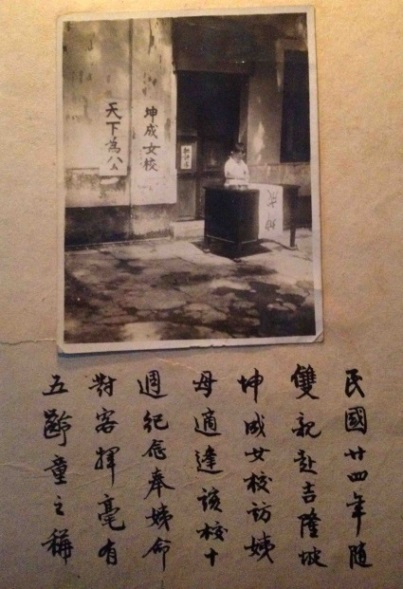 坤成女校
天下為公
民國廿四年隨
雙親赴吉隆坡
坤成女校訪姨
母適達該校十
週紀念奉姨命
對客揮毫有
五齡童之稱